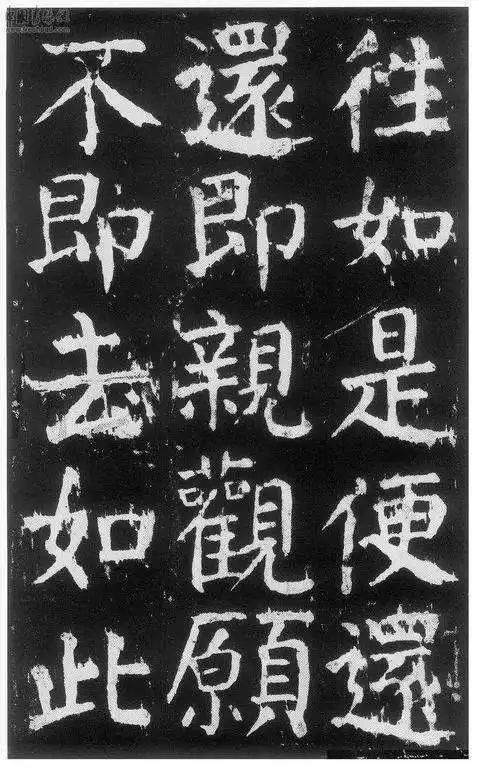 往如是便還
還即親觀願
不即去如此